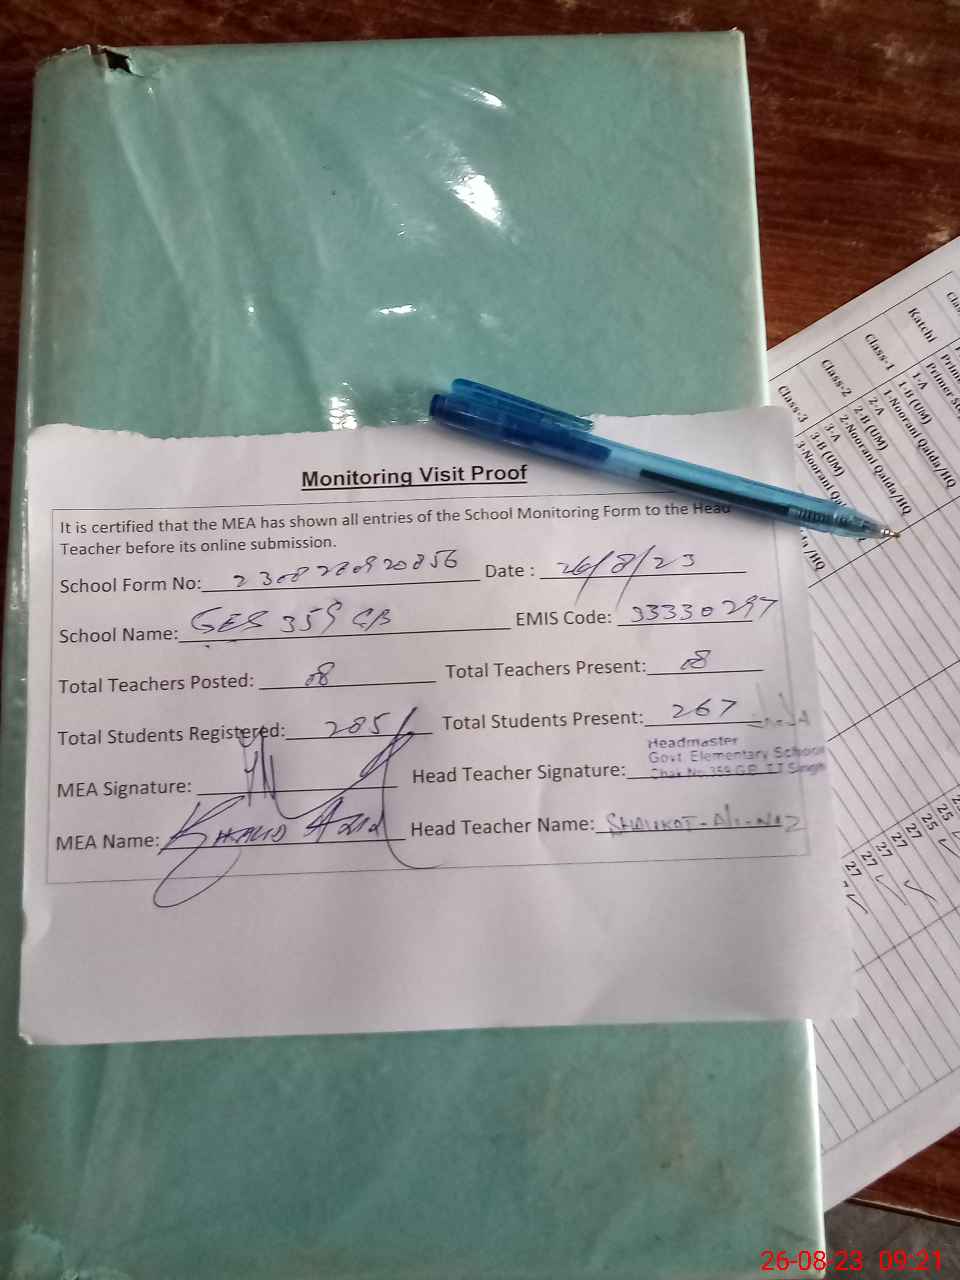 Monitoring Visit Proof
It is certified that the MEA has shown all entries of the School Monitoring Form to the Head
Teacher before its online submission.
School Form No: 2308280920856 Date : 26/8/23
School Name: GES 359 GB EMIS Code: 33330297
Total Teachers Posted: 08 Total Teachers Present: 08
Total Students Registered: 285 Total Students Present: 267
Headmaster
Govt. Elementary School
Chak No.359 G.B. T.T Singh
MEA Signature: Head Teacher Signature:
MEA Name: Khalid Aziz Head Teacher Name: SHAUKAT-Ali-
Katchi
Class-1
1-A
1-B (UM)
1-Noorani Qaida/HQ
Class-2
2-A
2-B (UM)
2-Noorani Qaida/HQ
Class-3
3-A
3-B (UM)
3-Noorani
27
27
27
27
25
25
26-08-23 09:21